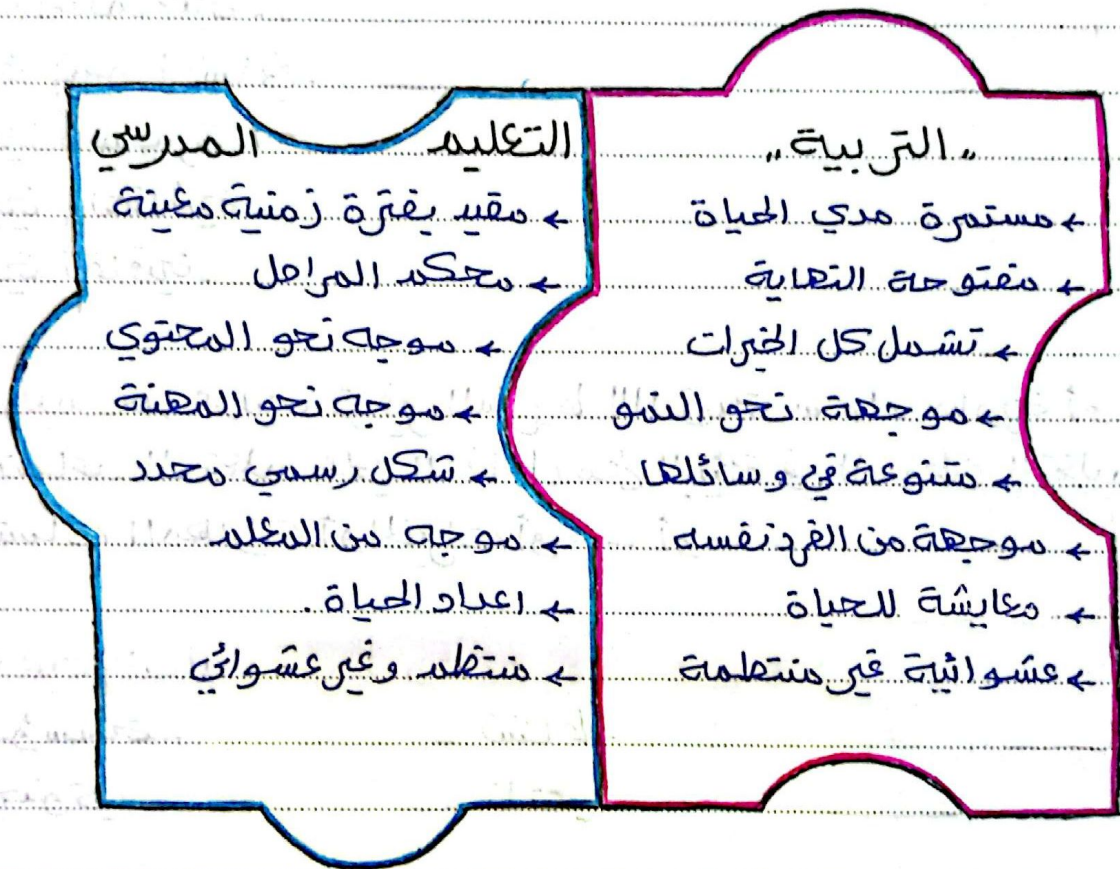 „ التربية „
← مستمرة مدي الحياة
← مفتوحة النهاية
← تشمل كل الخبرات
← موجهة نحو النمو
← متنوعة في وسائلها
← موجهة من الفرد نفسه
← معايشة للحياة
← عشوائية غير منتظمة
التعليم المدرسي
← مقيد بفترة زمنية معينة
← محكم المراحل
← موجه نحو المحتوي
← موجه نحو المهنة
← شكل رسمي محدد
← موجه من المعلم
← اعداد الحياة.
← منتظم وغير عشوائي